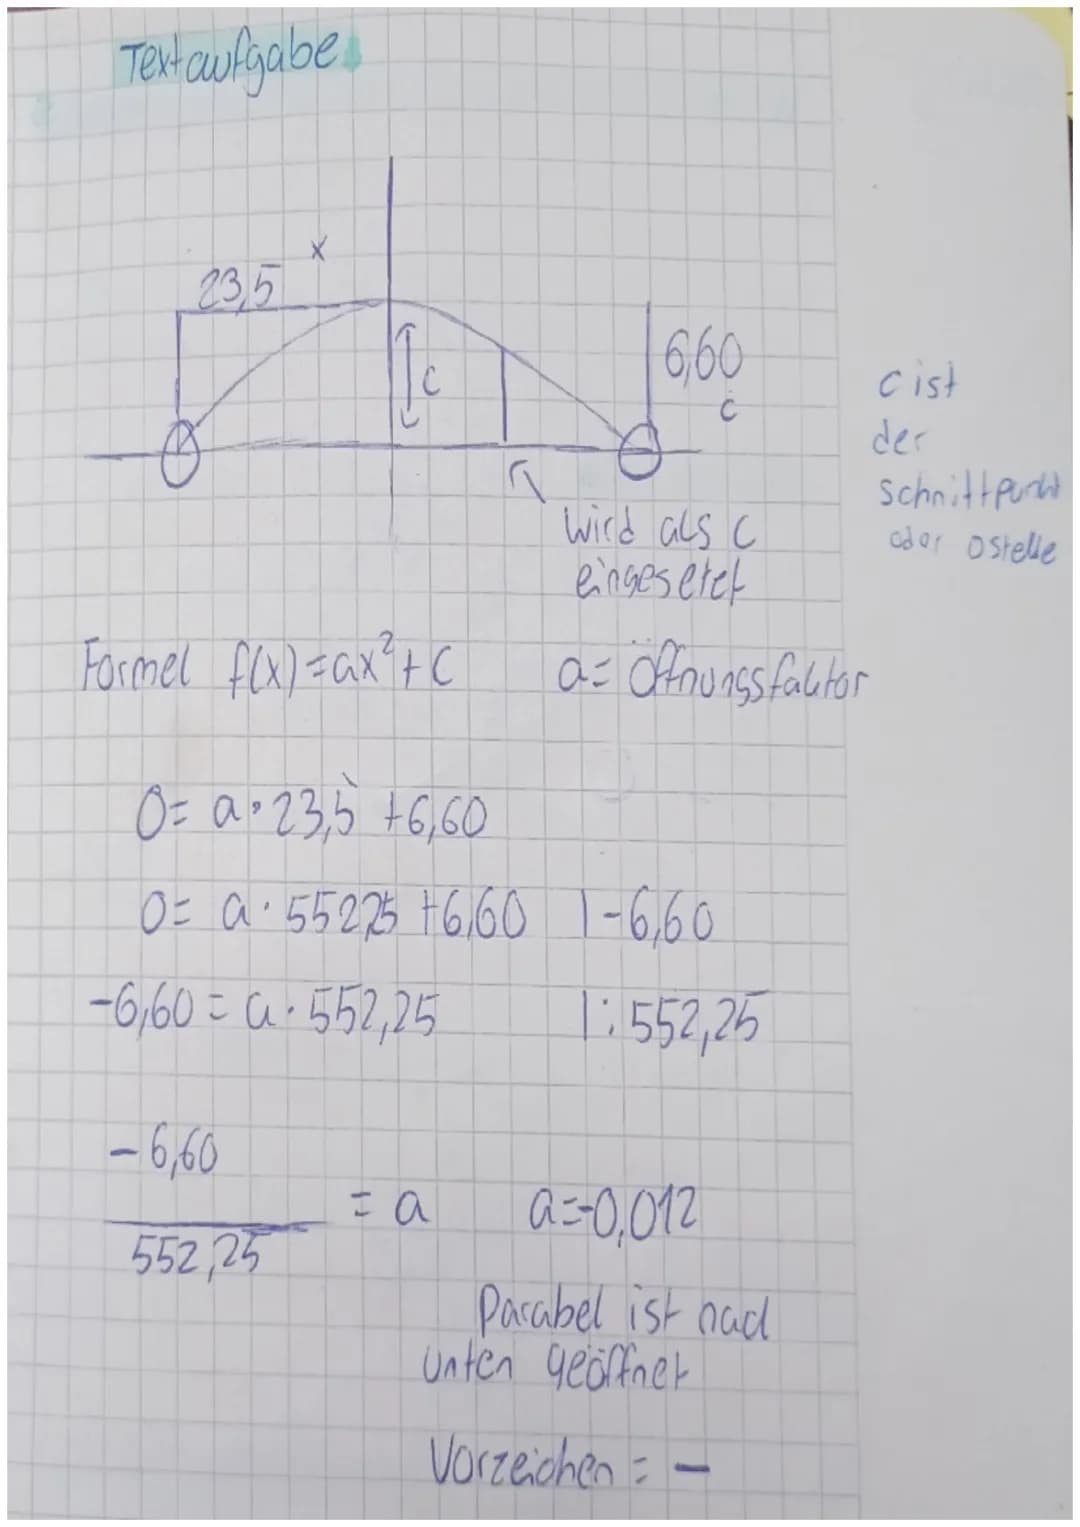 Textaufgabe
x
23,5
c
6,60
c
c ist
der
Schnittpunkt
oder 0stelle
wird als c
eingesetzt
Formel f(x)=ax²+c a= Öffnungsfaktor
0= a·23,5² +6,60
0= a·552,25 +6,60 |-6,60
-6,60 = a·552,25 |:552,25
-6,60
= a a=-0,012
552,25
Parabel ist nach
unten geöffnet
Vorzeichen = -